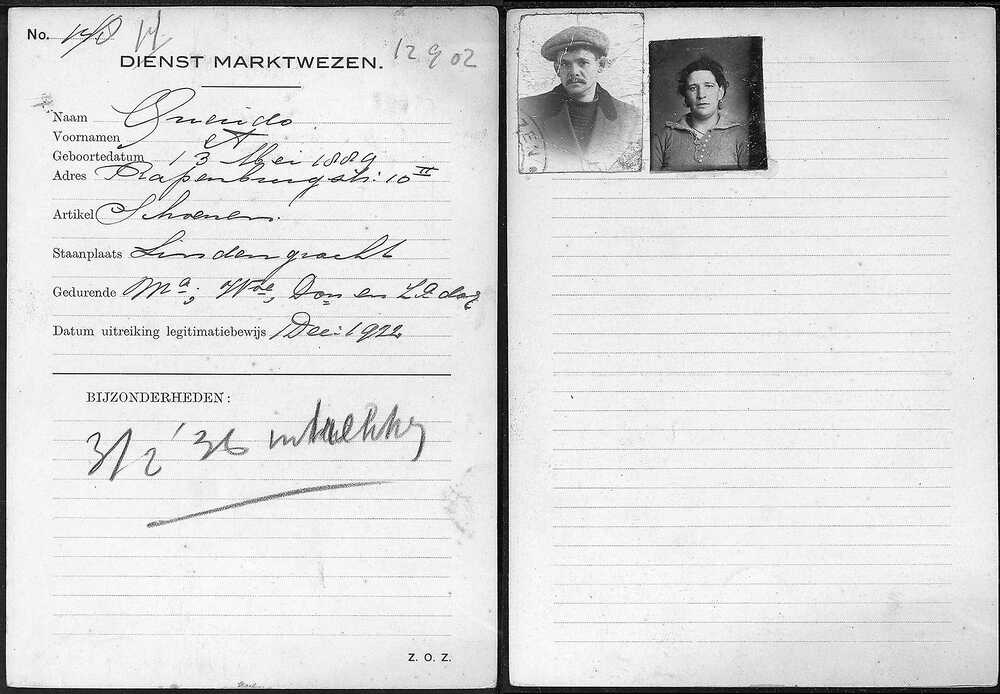 No.
12 9 02
DIENST MARKTWEZEN.
Naam Querido
Voornamen A
Geboortedatum 13 Mei 1889
Adres Rapenburgstr: 10 II
Artikel Schoenen.
Staanplaats Lindengracht
Gedurende Ma; Woe, Don en Za dag
Datum uitreiking legitimatiebewijs 1 Dec: 1922
BIJZONDERHEDEN:
3/2 '36 intrekking
Z. O. Z.